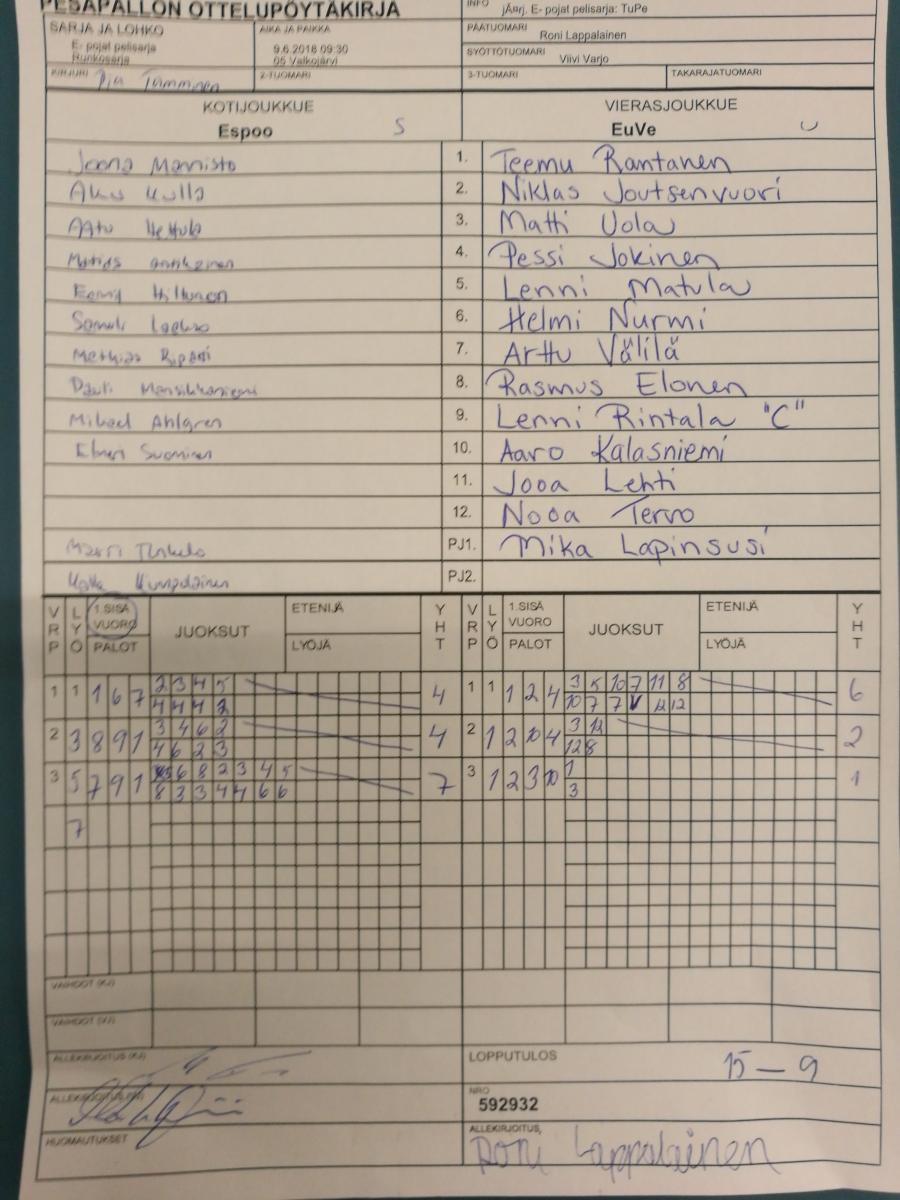 PESÄPALLON OTTELUPÖYTÄKIRJA
INFO jÄrj. E- pojat pelisarja: TuPe
SARJA JA LOHKO
E- pojat pelisarja
Runkosarja
AIKA JA PAIKKA
9.6.2018 09:30
05 Valkojärvi
PÄÄTUOMARI
Roni Lappalainen
SYÖTTÖTUOMARI
Viivi Varjo
KIRJURI Pia Tamminen
2-TUOMARI
3-TUOMARI
TAKARAJATUOMARI
KOTIJOUKKUE
Espoo S
VIERASJOUKKUE
EuVe U
Joona Mannisto 1. Teemu Rantanen
Kulla 2. Niklas Joutsenvuori
Aatu Hettula 3. Matti Uola
Matias 4. Pessi Jokinen
Eemil Hiltunen 5. Lenni Matula
Samuli Laakso 6. Helmi Nurmi
Mathias 7. Arttu Välilä
Pauli Mansikkaniemi 8. Rasmus Elonen
Mikael Ahlgren 9. Lenni Rintala "C"
Elmeri Suominen 10. Aaro Kalasniemi
11. Jooa Lehti
12. Nooa Tervo
PJ1. Mika Lapinsusi
PJ2.
VRP LYÖ 1.SISÄ VUORO PALOT JUOKSUT ETENIJÄ LYÖJÄ YHT
VRP LYÖ 1.SISÄ VUORO PALOT JUOKSUT ETENIJÄ LYÖJÄ YHT
1 1 1 6 7 2 3 4 5 4 1 1 1 2 4 3 5 10 7 11 8 6
4 4 4 2 10 7 7 11 12
2 3 8 9 1 3 4 6 2 4 2 1 2 10 4 3 12 2
4 6 2 3 12 8
3 5 7 9 1 6 8 2 3 4 5 7 3 1 2 3 10 1 1
8 3 3 4 4 6 6 3
7
VAIHDOT (KJ)
VAIHDOT (VJ)
ALLEKIRJOITUS (KJ)
LOPPUTULOS 15 – 9
ALLEKIRJOITUS (VJ)
NRO
592932
HUOMAUTUKSET
ALLEKIRJOITUS,
Roni Lappalainen